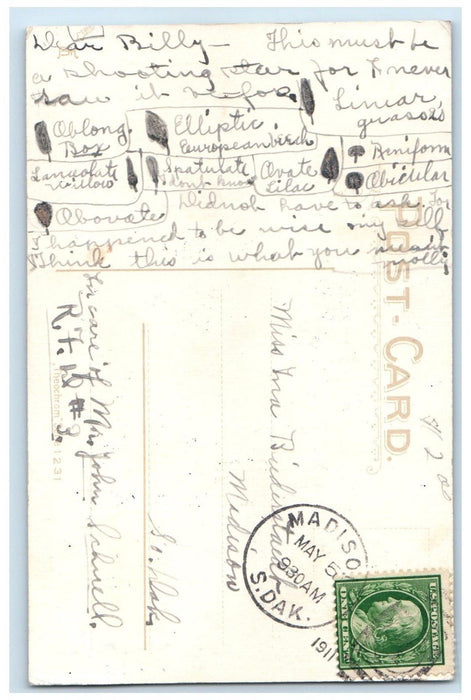 Dear Billy— This must be
a shooting star for I never
saw it before.
Linear,
grasses
Oblong.
Box
Elliptic
European birch
Reniform
Lanceolate
willow
Spatulate
dont know
Ovate
Lilac
Obicular
Obovate
Didnot have to ask for
I happened to be wise my self
Think this is what you
POST-CARD.
Miss Ina
Madison
So. Dak.
In care of Mr. John Schnell.
R.F.D #3.
1231
420
MADISO
MAY 5
930AM
S.DAK.
1911